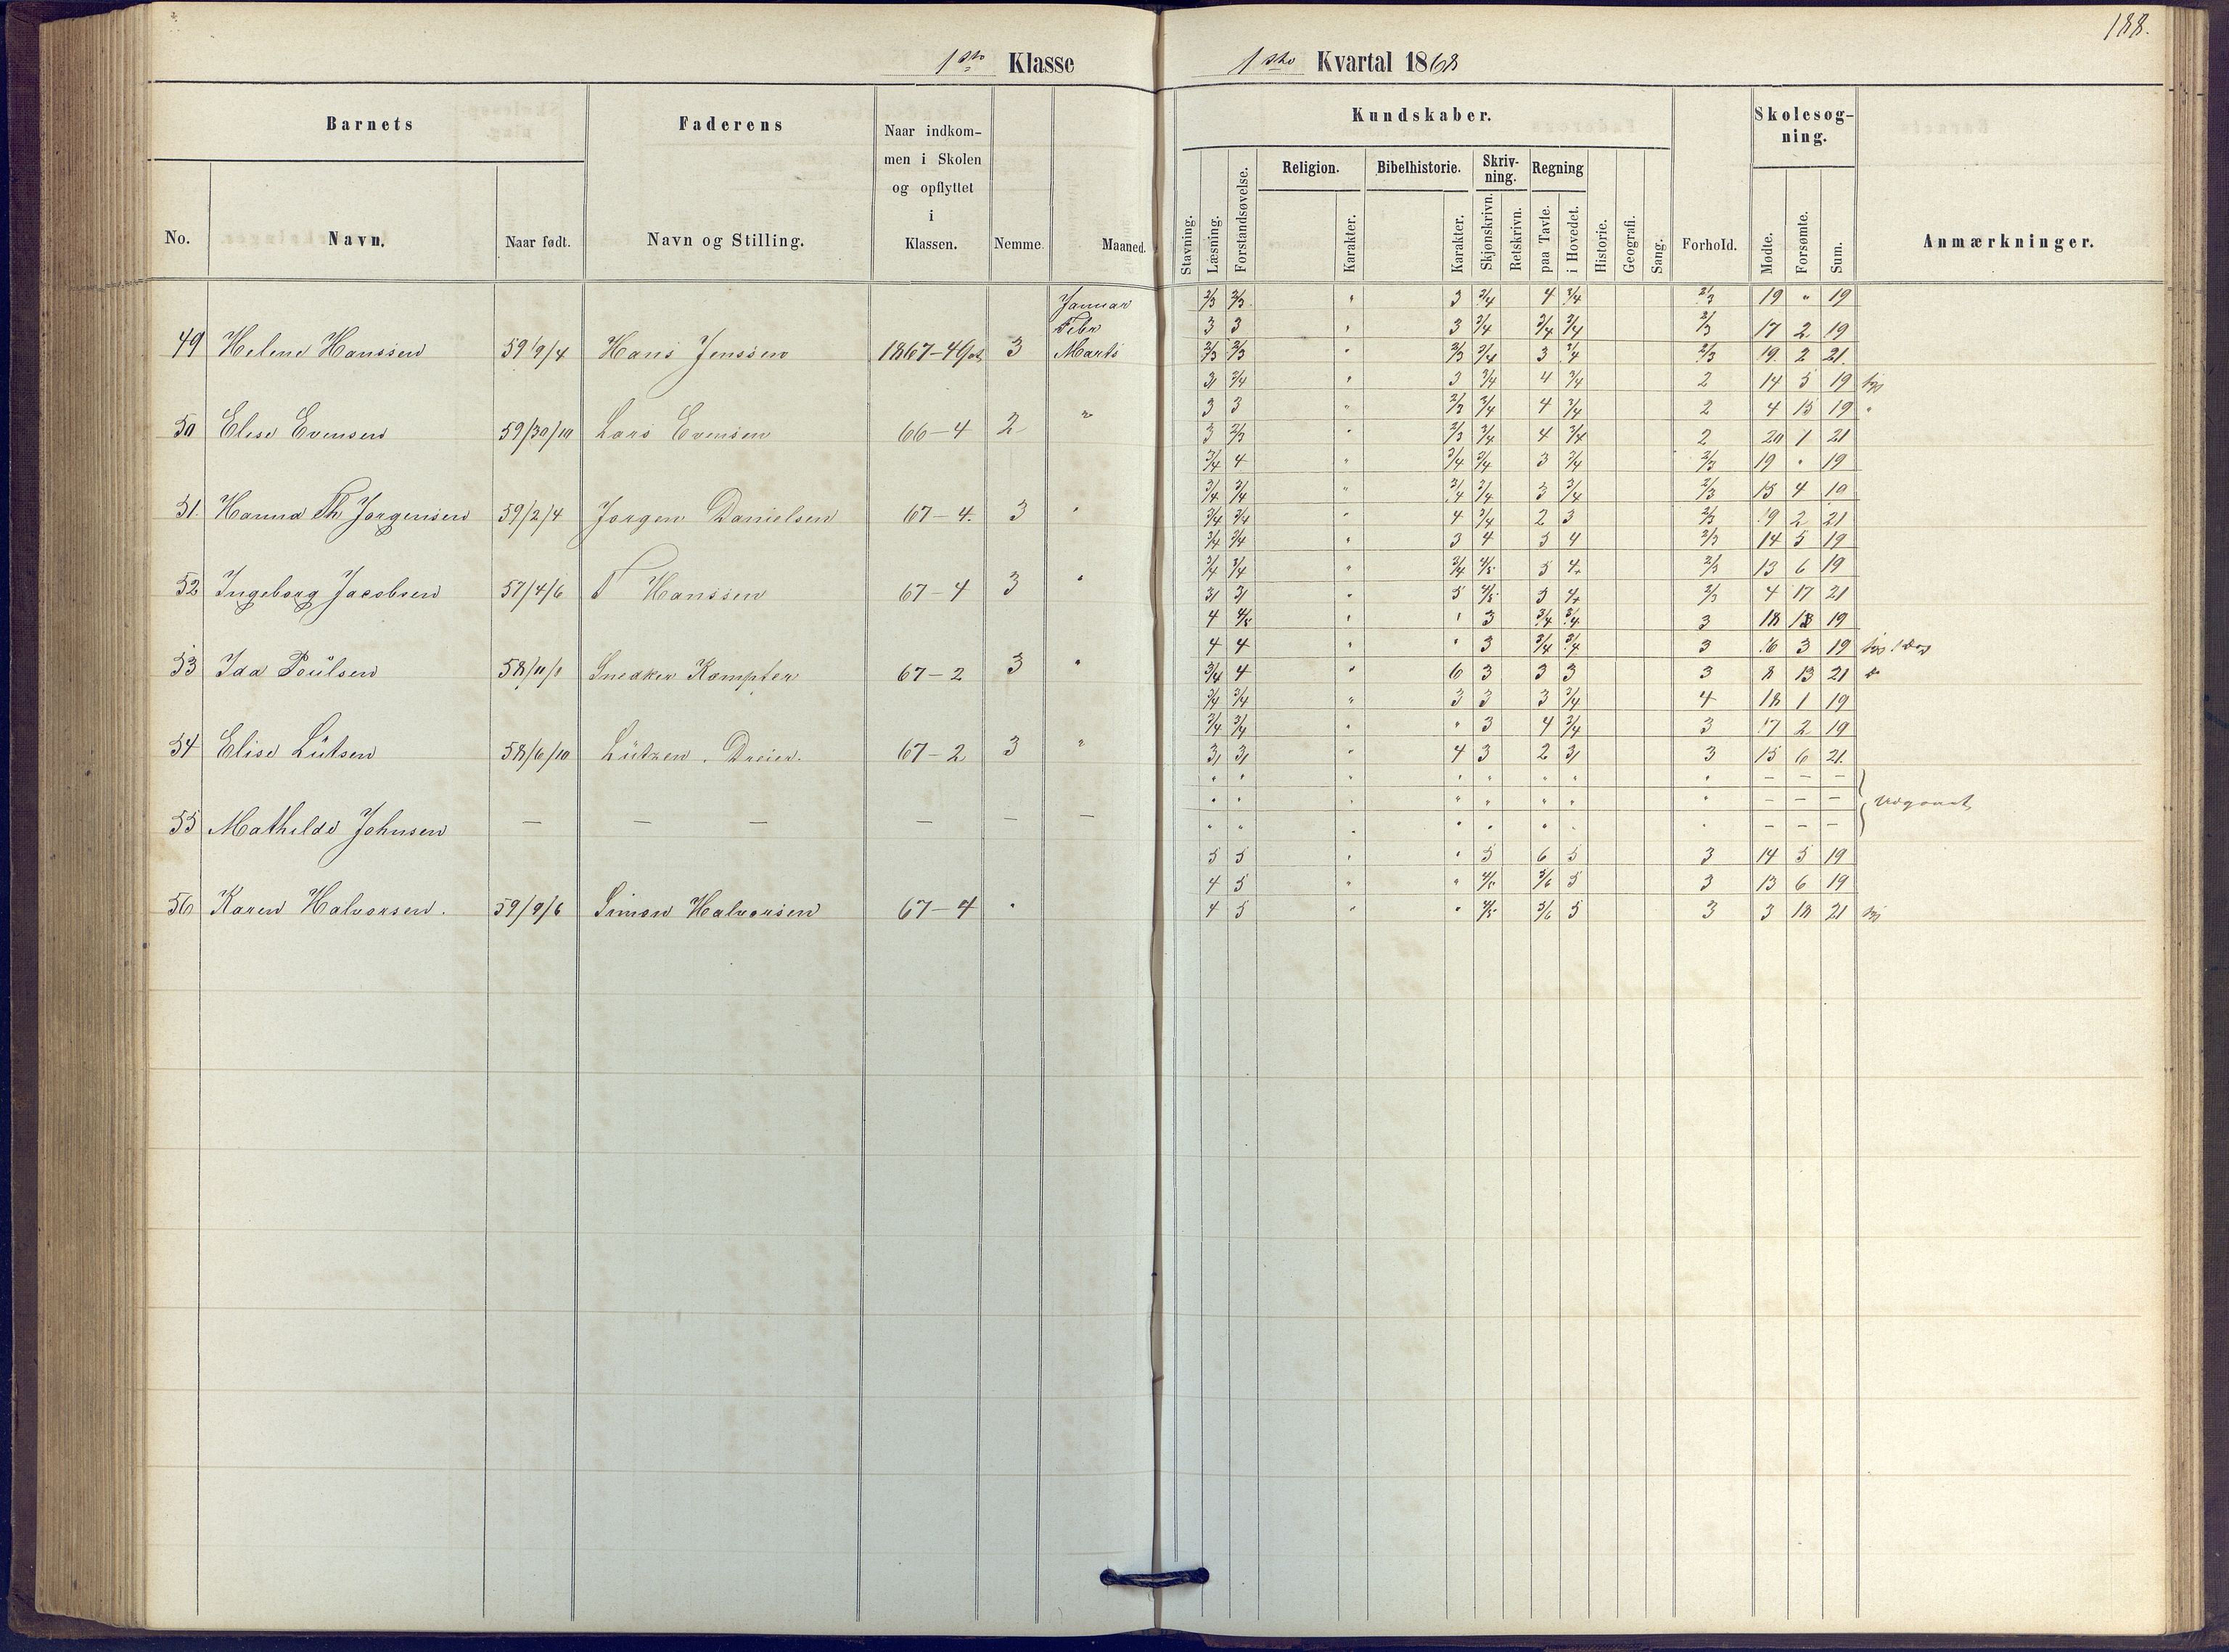 188.
1ste Klasse
1ste Kvartal 1868
Barnets
Faderens
Naar indkom-
men i Skolen
og opflyttet
i
Klassen.
No.
Navn.
Naar født.
Navn og Stilling.
Nemme.
Maaned.
Kundskaber.
Skolesøg-
ning.
Religion.
Bibelhistorie.
Skriv-
ning.
Regning
Stavning.
Læsning.
Forstandsøvelse.
Karakter.
Karakter.
Skjønskrivn.
Retskrivn.
paa Tavle.
i Hovedet.
Historie.
Geografi.
Sang.
Forhold.
Mødte.
Forsømte.
Sum.
Anmærkninger.
Januar 2/3 2/3 " 3 3/4 4 3/4 2/3 19 " 19
Febr 3 3 " 3 3/4 3/4 3/4 2/3 17 2 19
49 Helene Hanssen 59/9/4 Hans Jenssen 1867-4 3 Marts 2/3 2/3 " 2/3 3/4 3 3/4 2/3 19 2 21
3 3/4 " 3 3/4 4 3/4 2 14 5 19 syg
3 3 " 2/3 3/4 4 3/4 2 4 15 19 "
50 Elise Evensen 59/30/10 Lars Evensen 66-4 2 " 3 2/3 " 2/3 3/4 4 3/4 2 20 1 21
3/4 4 " 3/4 3/4 3 3/4 2/3 19 " 19
3/4 3/4 " 3/4 3/4 3 3/4 2/3 15 4 19
51. Hanna Th Jørgensen 59/2/4 Jørgen Danielsen 67-4. 3 " 3/4 3/4 " 4 3/4 2 3 2/3 19 2 21
3/4 3/4 " 3 4 5 4 2/3 14 5 19
3/4 3/4 " 3/4 4/5 5 4 2/3 13 6 19
52 Ingeborg Jacobsen 57/4/6 T Hanssen 67-4 3 " 3 3 " 5 4/5 5 4 2/3 4 17 21
4 4/5 " " 3 3/4 3/4 3 18 19
4 4 " " 3 3/4 3/4 3 16 3 19 syg
53 Ida Poulsen 58/11/1 Snedker Kompter 67-2 3 " 3/4 4 " 6 3 3 3 3 8 13 21
3/4 3/4 " 3 3 3 3/4 4 18 1 19
3/4 3/4 " " 3 4 3/4 3 17 2 19
54 Elise Lütsen 58/6/10 Lützen. Dreier. 67-2 3 " 3 3 " 4 3 2 3 3 15 6 21.
" " " " " " " " — — —
" " " " " " " " — — — udgaaet
55 Mathilde Johnsen — — — — — — " " " " " " " " — — —
5 5 " " 5 6 5 3 14 5 19
4 5 " " 4/5 5/6 5 3 13 6 19
56 Karen Halvorsen. 59/9/6 Simon Halvorsen 67-4 " 4 5 " " 4/5 5/6 5 3 3 18 21 syg